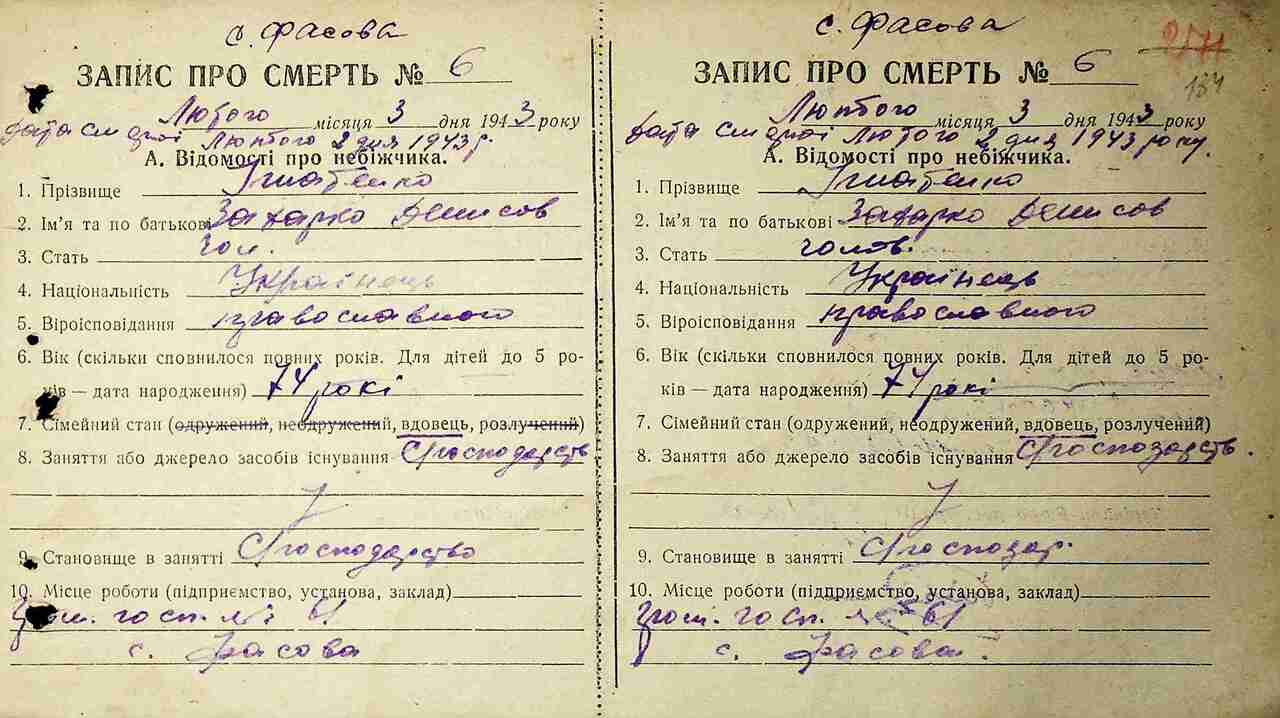 с. Фасова
ЗАПИС ПРО СМЕРТЬ № 6
Лютого місяця 3 дня 1943 року
дата смерті Лютого 2 дня 1943 р.
А. Відомості про небіжчика.
1. Прізвище Ігнатенко
2. Ім'я та по батькові Захарко Денисов
3. Стать чол.
4. Національність Українець
5. Віроісповідання православного
6. Вік (скільки сповнилося повних років. Для дітей до 5 ро-
ків — дата народження) 74 рокі
7. Сімейний стан (одружений, неодружений, вдовець, розлучений)
8. Заняття або джерело засобів існування Сг господарств
У
9. Становище в занятті Сг господарство
10. Місце роботи (підприємство, установа, заклад)
гром. госп. № 61
с. Фасова
с. Фасова
2171
154
ЗАПИС ПРО СМЕРТЬ № 6
Лютого місяця 3 дня 1943 року
дата смерті Лютого 2 дня 1943 року.
А. Відомості про небіжчика.
1. Прізвище Ігнатенко
2. Ім'я та по батькові Захарко Денисов
3. Стать чолов.
4. Національність Українець
5. Віроісповідання православного
6. Вік (скільки сповнилося повних років. Для дітей до 5 ро-
ків — дата народження) 74 рокі
7. Сімейний стан (одружений, неодружений, вдовець, розлучений)
8. Заняття або джерело засобів існування Сг господарств.
У
9. Становище в занятті Сг господар.
10. Місце роботи (підприємство, установа, заклад)
гром. госп. № 61
с. Фасова.